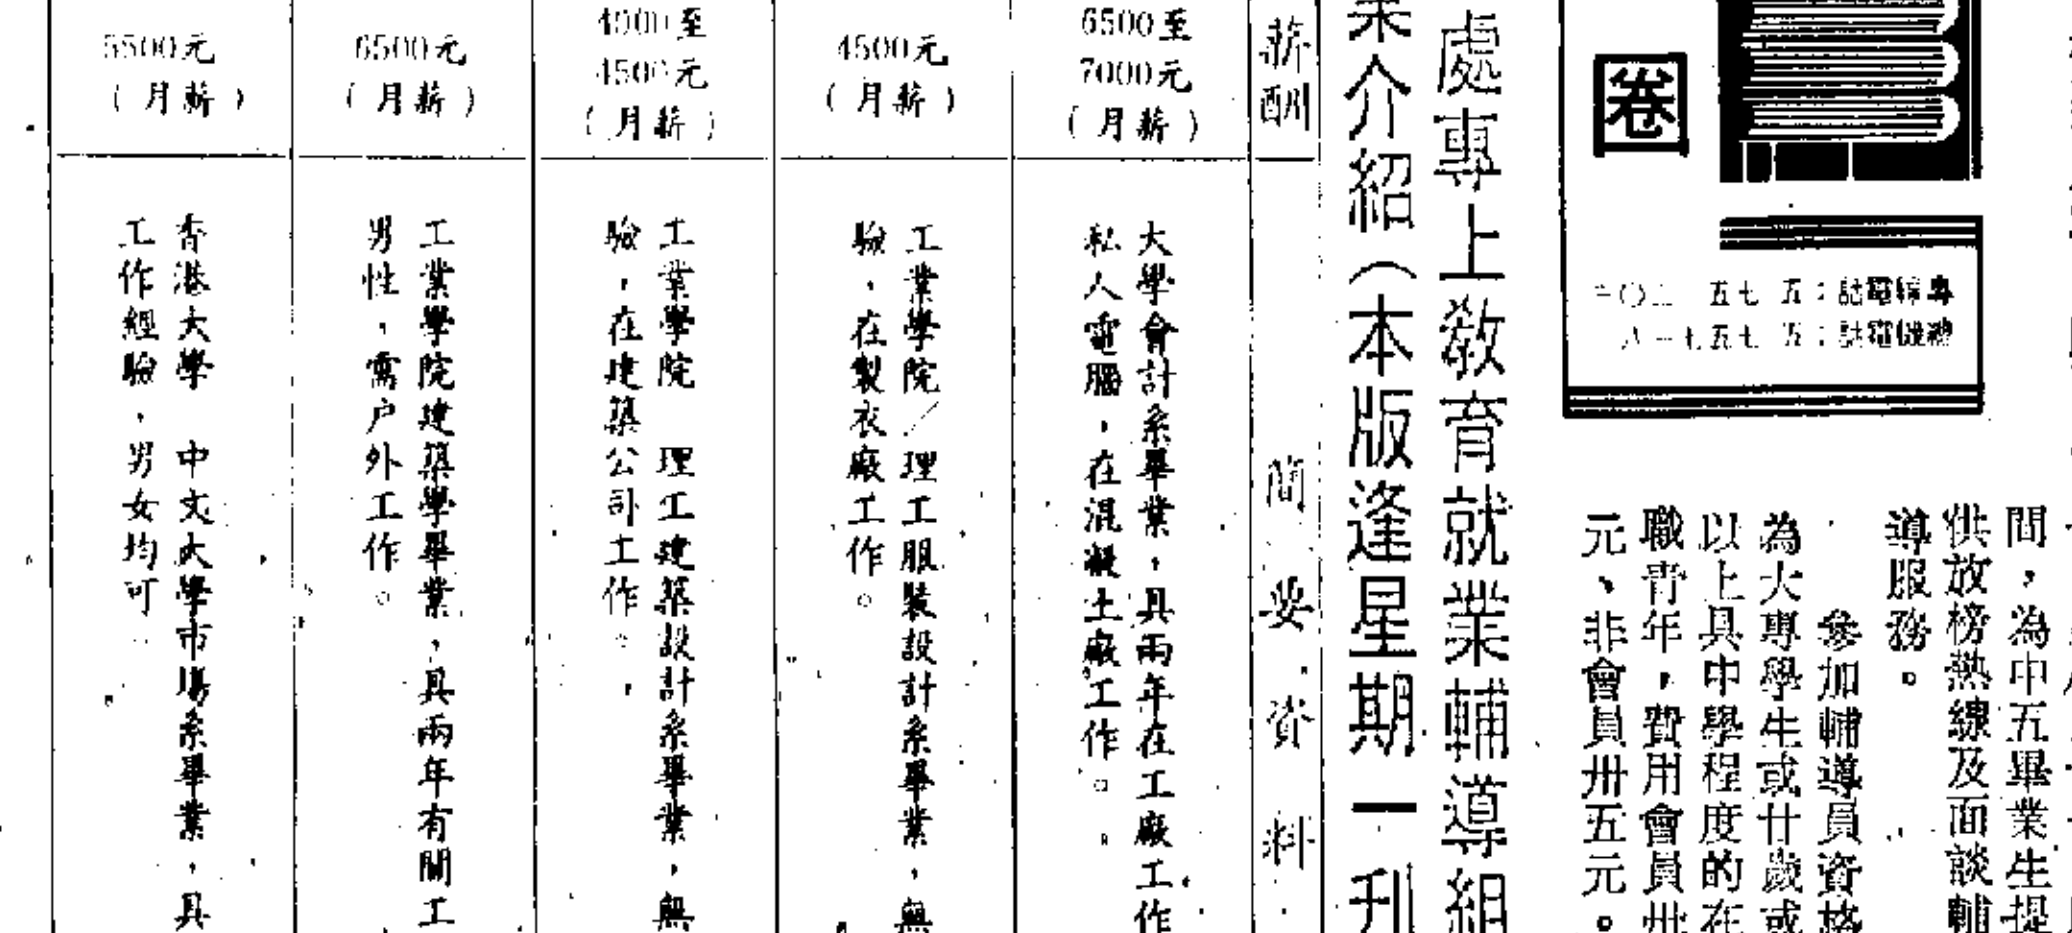 間，為中五畢業生提
供放榜熱線及面談輔
導服務。
參加輔導員資格
為大專學生或廿歲或
以上具中學程度的在
職青年，費用會員卅
元、非會員卅五元。
卷
專線電話：五 七五
總機電話：五 七五七一八
處專上教育就業輔導組
業介紹（本版逢星期一刊
薪酬
簡要資料
6500至
7000元
（月薪）
大學會計系畢業，具兩年在工廠工作
私人電腦，在混凝土廠工作。
4500元
（月薪）
工業學院／理工服裝設計系畢業，無
驗，在製衣廠工作。
4000至
4500元
（月薪）
工業學院 理工建築設計系畢業，無
驗，在建築公司工作。
6500元
（月薪）
工業學院建築學畢業，具兩年有關工
男性，需户外工作。
5500元
（月薪）
香港大學 中文大學市場系畢業，具
工作經驗，男女均可